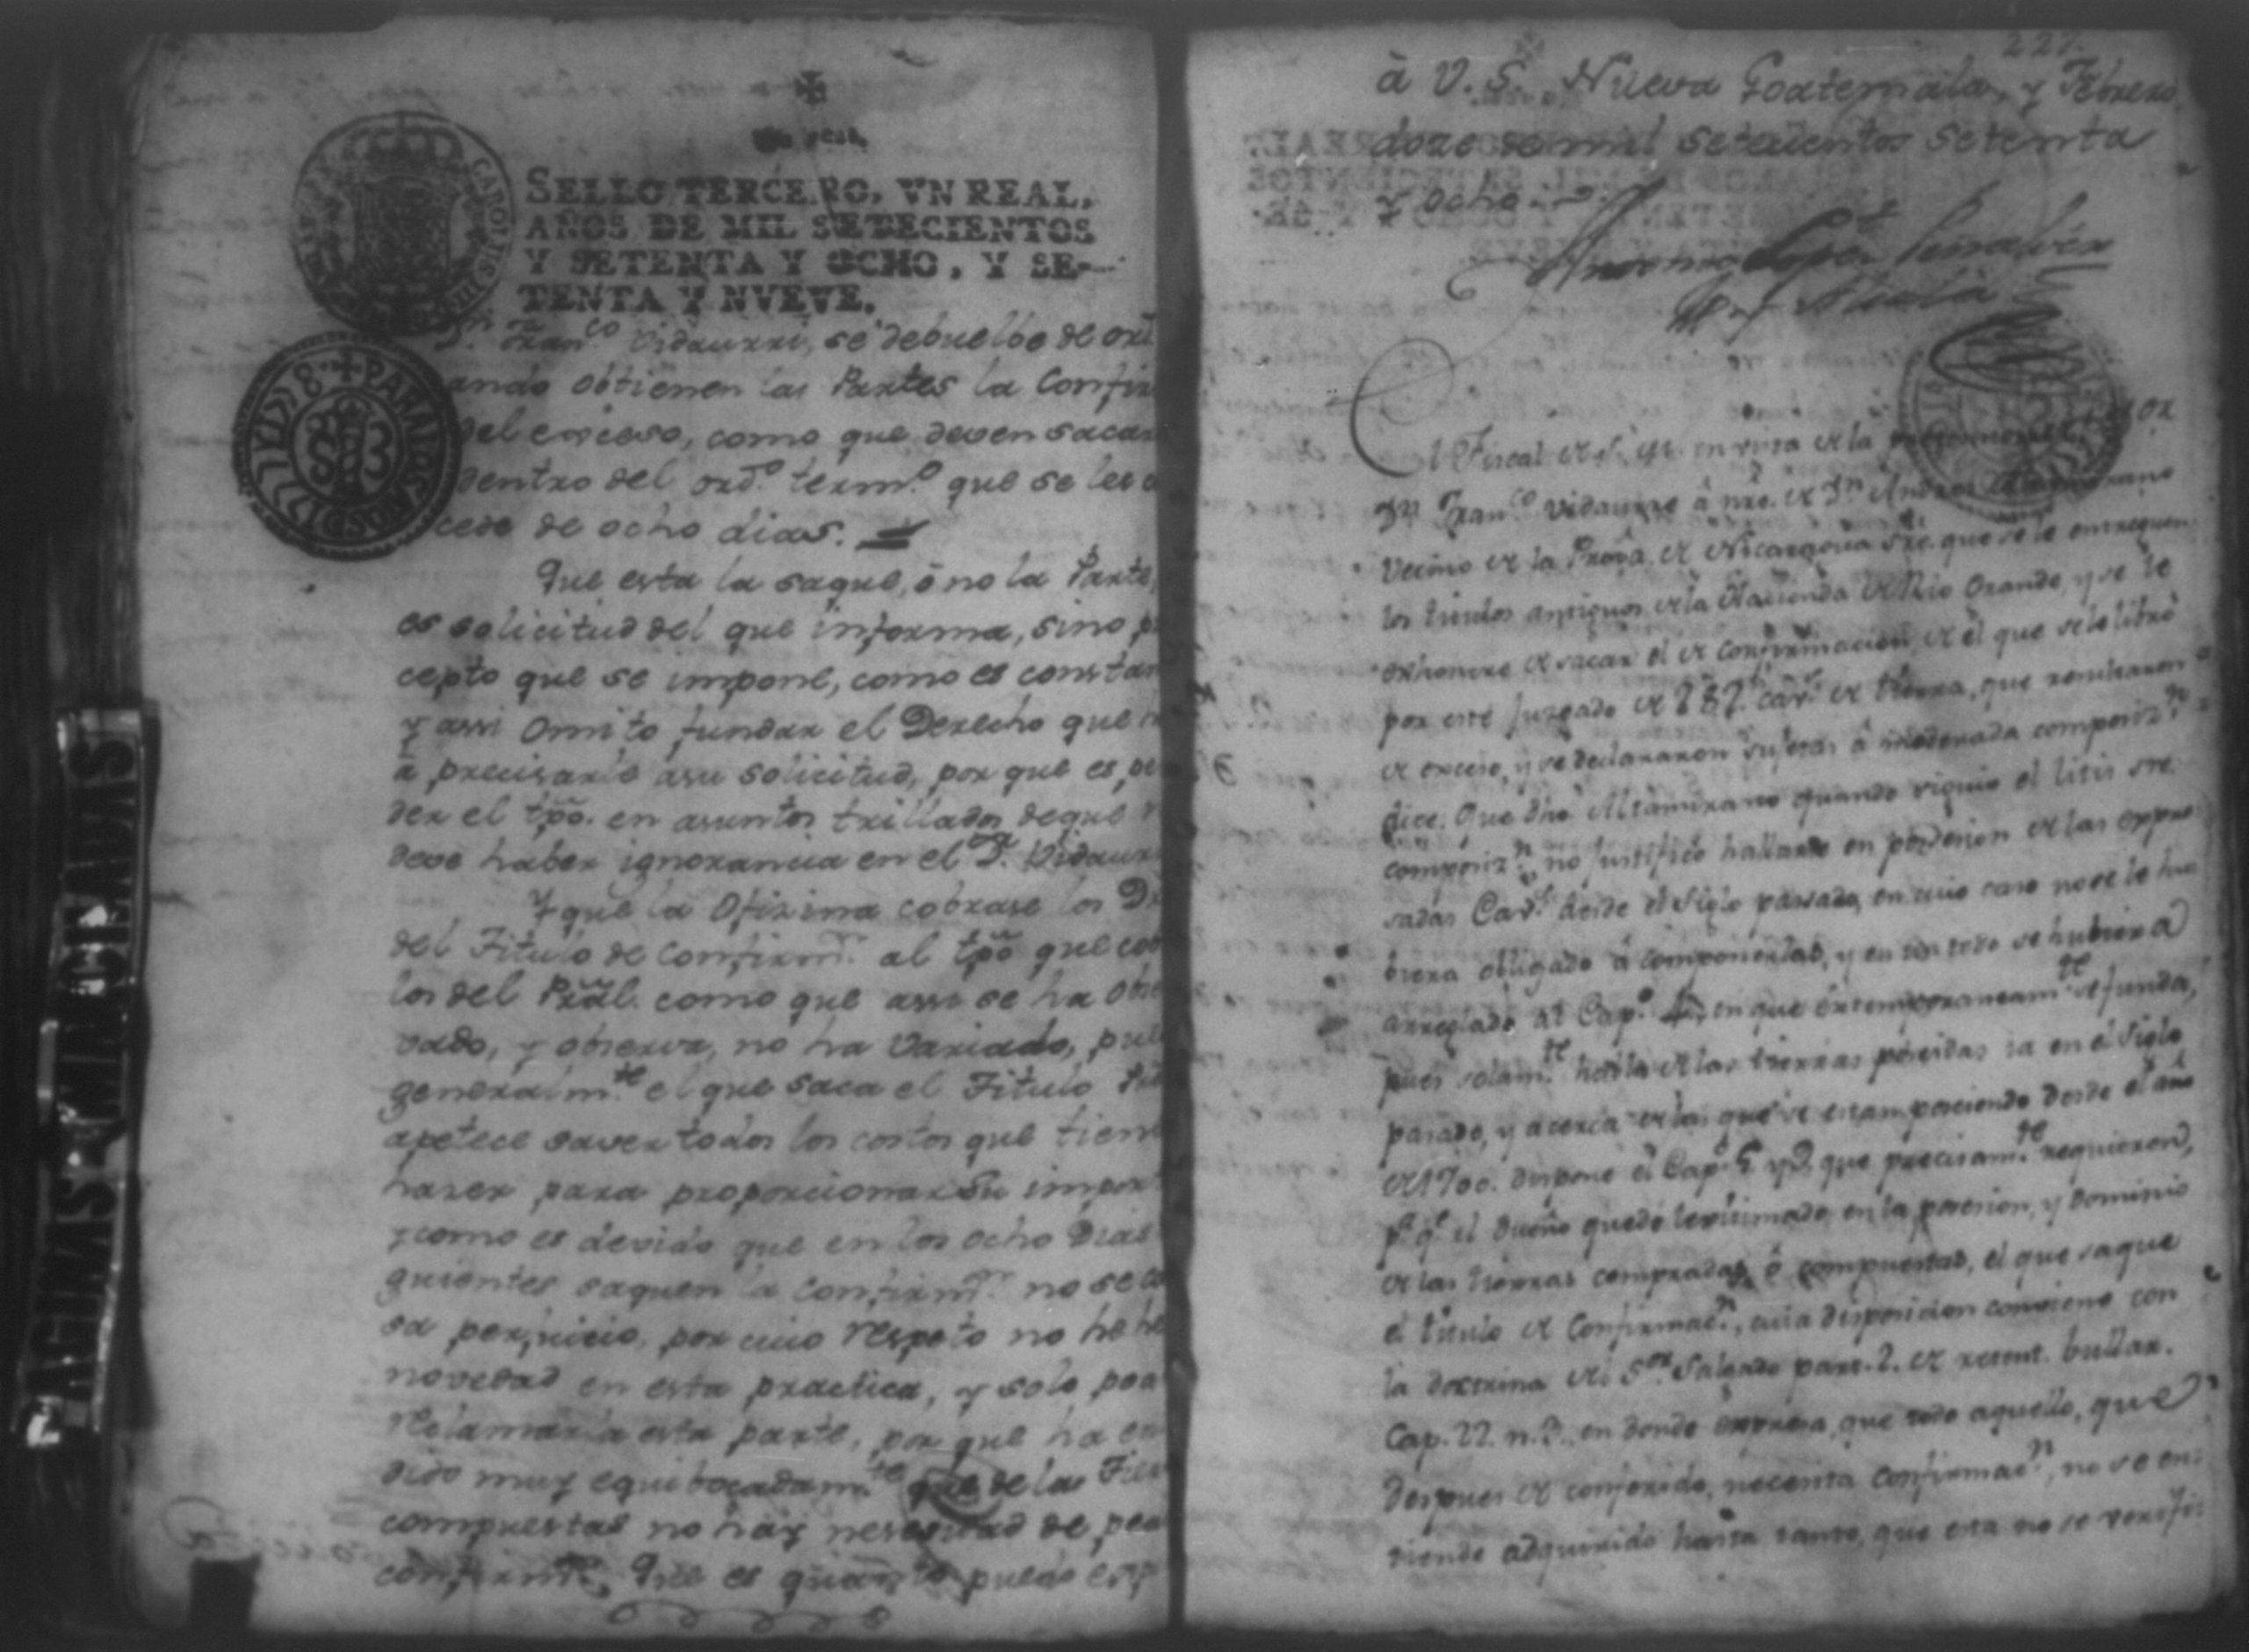 Un real.
SELLO TERCERO, VN REAL,
AÑOS DE MIL SETECIENTOS
Y SETENTA Y OCHO, Y SE-
TENTA Y NVEVE.
CAROLUS III
PARA LOS AÑOS D 1777 Y 78
S 3
Dn. Franco. Vidaurri, se debuelbe de
ando obtienen las Partes la Confir
del exceso, como que deven sacar
dentro del ordo. termo. que se les
cede de ocho dias.
Que esta la saque, ò no la Parte,
es solicitud del que informa, sino p
cepto que se impone, como es constan
y assi omito fundar el Derecho que
a precisarle a su solicitud, por que es, pe
der el tpõ. en asuntos trillados de que
deve haber ignorancia en el Dn. Vidaur
Y que la Ofizina cobrase los D
del Titulo de Confirmn. al tpõ que co
los del Prãl. como que assi se ha obse
vado, y observa, no ha variado, pue
generalmte. el que saca el Titulo
apetece saver todos los costos que tiene
haser para proporcionar su impor
y como es devido que en los ocho Dias
guientes saquen la Confirmn. no se
sa perjuicio, por cuio respeto no he he
novedad en esta practica, y solo po
reclamarla esta parte, por que ha en
dido muy equibocadamte. que de las Tier
compuestas no hay nesesidad de pe
confirmn. Que es quanto puedo esp
227.
à V. S. Nueva Goatemala, y Febrero
doze de mil setecientos setenta
y ocho
Antonio Lopez Peñalver
y Alcalà
El Fiscal de S. M. en vista de la
Dn. Franco. Vidaurre à nre. de Dn. Andres Altamirano
Vecino de la Prova. de Nicaragua sre. que se le entreguen
los titulos antiguos de la Hacienda de Rio Grande, y se le
exhonere de sacar el de confirmacion de el que se le librò
por este Juzgado de cavs. de tierra, que resultaron
de exceso, y se declararon sujetas à moderada composizn.
dice: Que dho. Altamirano quando siguio el litis sre.
composizn. no justificò hallarse en posesion de las expre
sadas Cavs. desde el Siglo passado, en cuio caso no se le hu
biera obligado à componerlas, y en un todo se hubiera
arreglado al Capo. en que extemporaneamte. se funda,
pues solamte. habla de las tierras poseidas ia en el Siglo
pasado, y acerca de las que se estan poseiendo desde el año
de 1700. dispone el Capo. que precisamte. requieren,
pa. qe. el dueño quede lexitimado en la posesion, y dominio
de las tierras compradas, ò compuestas, el que saque
el titulo de Confirmacn., cuia disposicion conviene con
la doctrina del Sor. Salgado part. 2. de retent. bullar.
Cap. 22. n. 3. en donde expresa, que todo aquello, que
despues de conferido, necesita confirmacn., no se en-
tiende adquirido hasta tanto, que esta no se verifi-
ARCHIVOS MICROFILMADOS